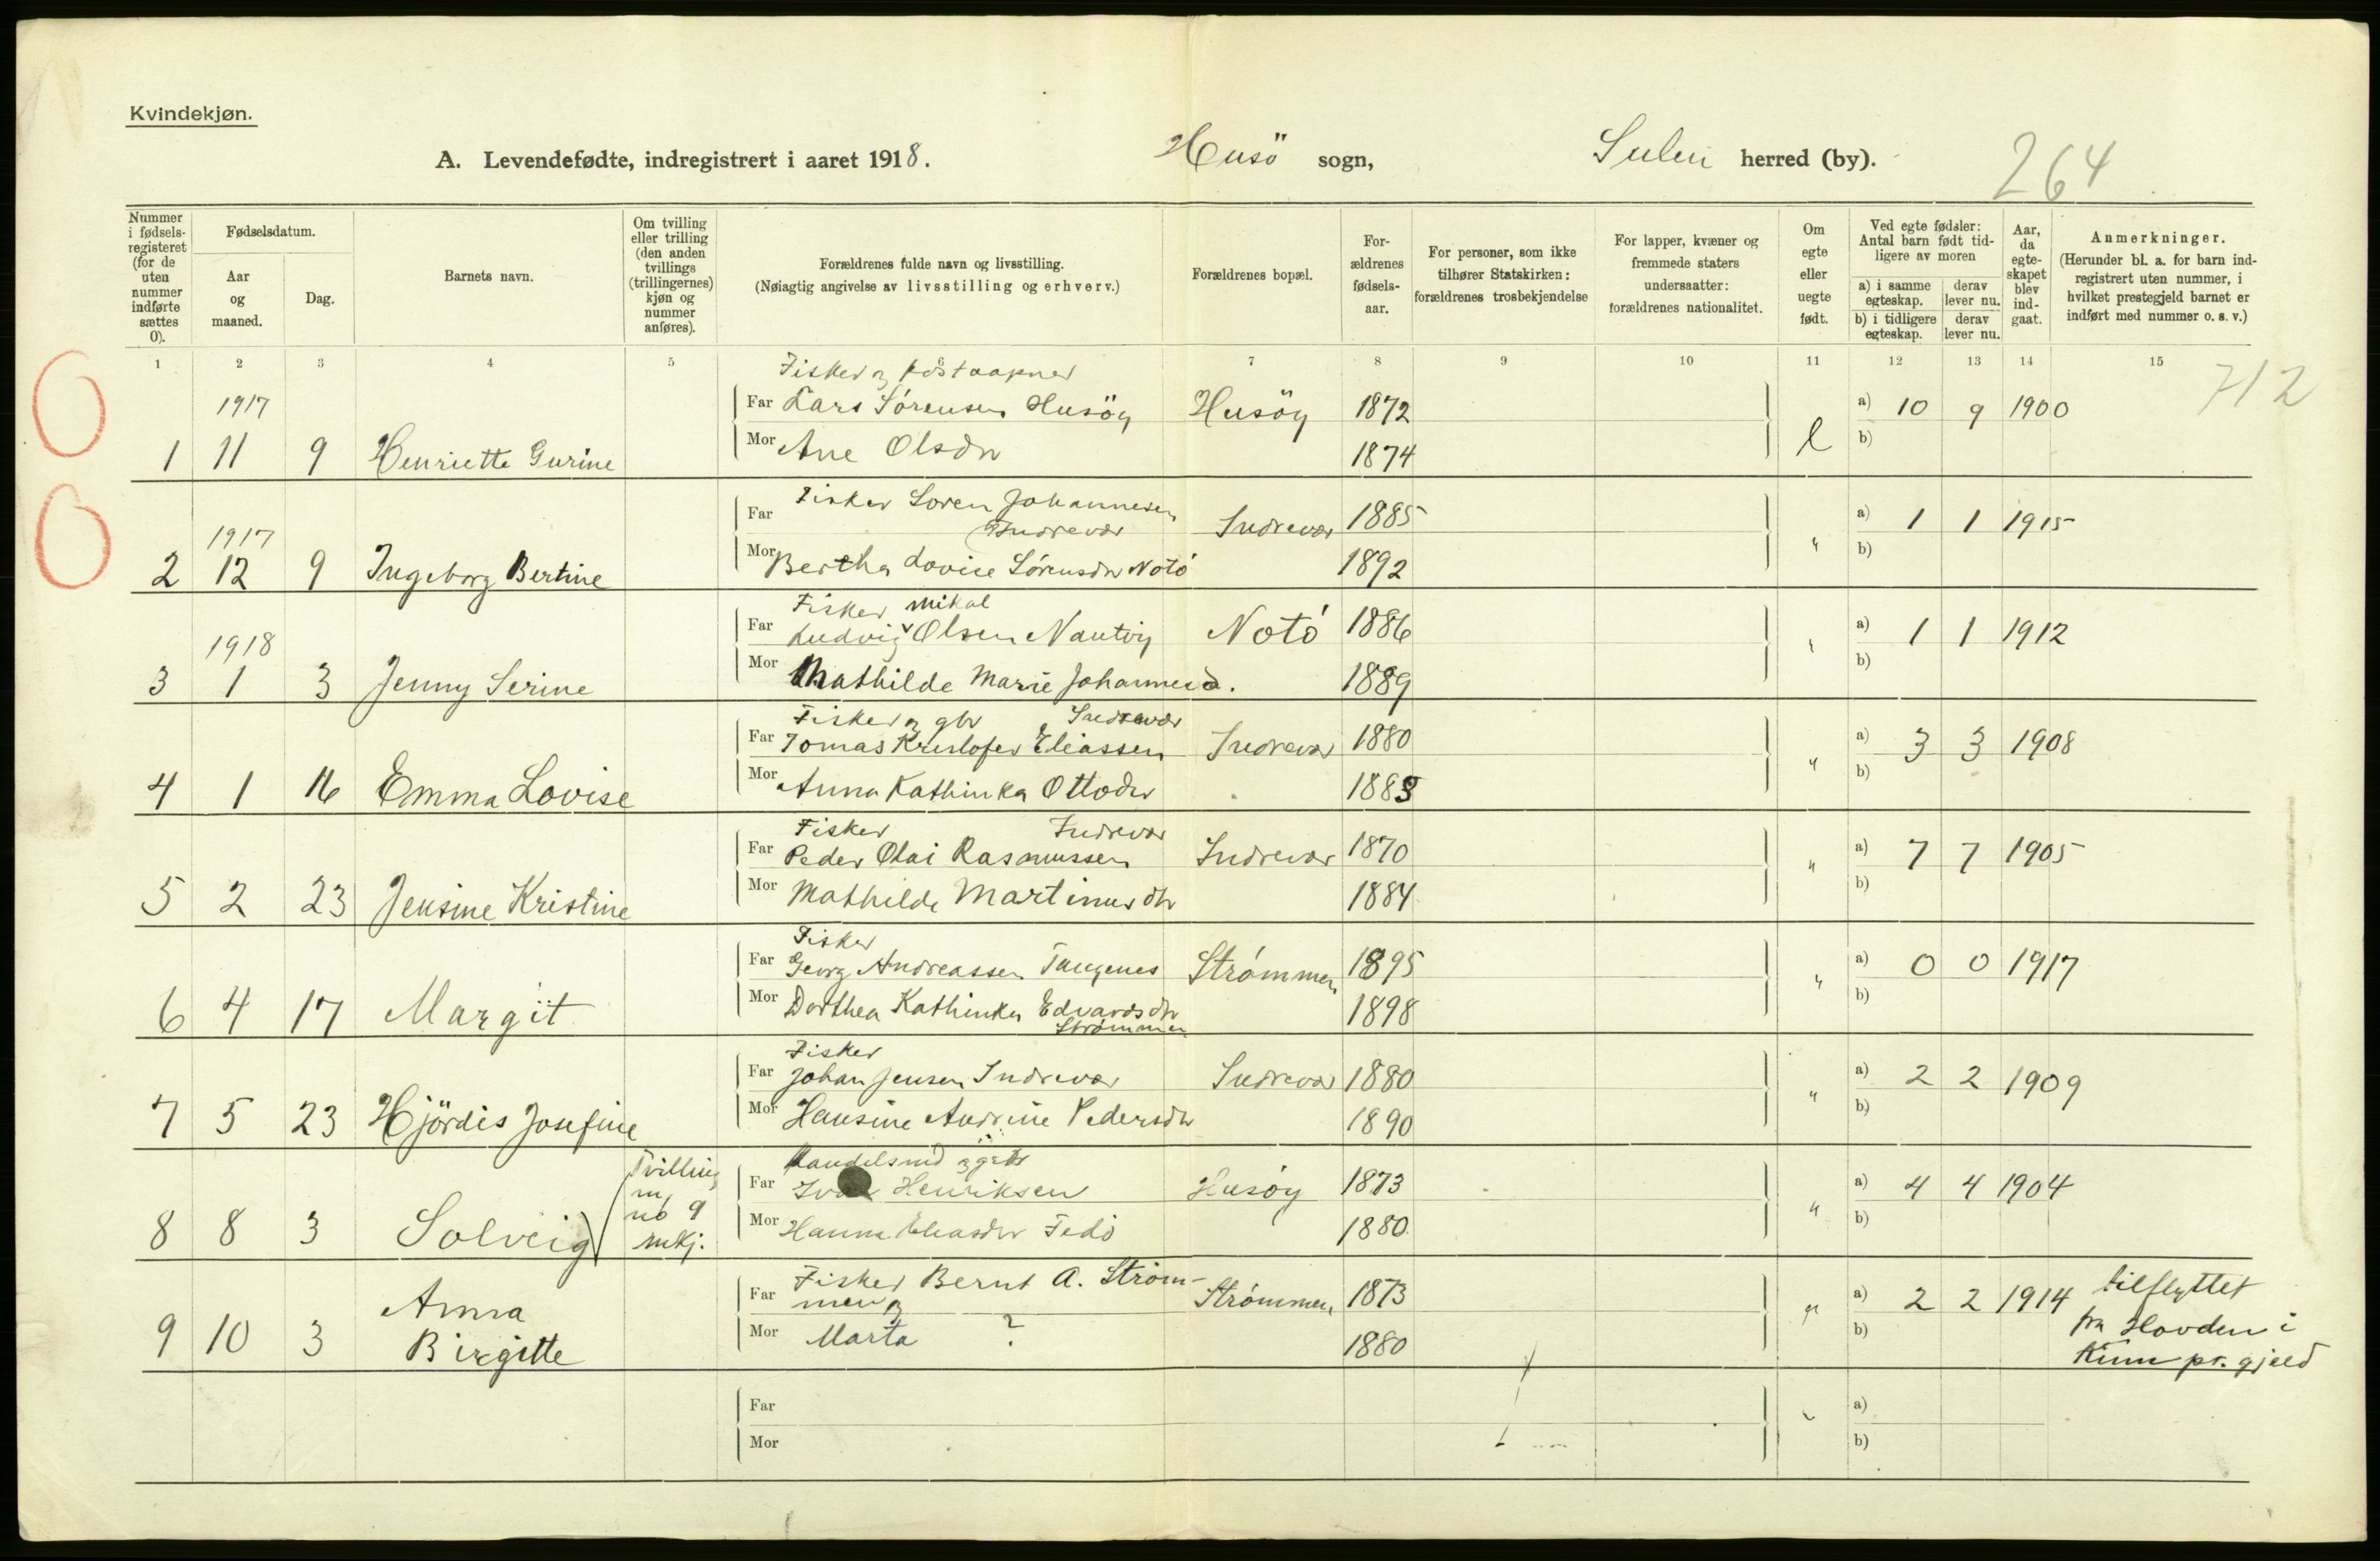 Kvindekjøn.
A. Levendefødte, indregistrert i aaret 1918. Husö sogn, Sulen herred (by). 264
Nummer i fødsels-registeret (for de uten nummer indførte sættes 0).
Fødselsdatum.
Aar og maaned.
Dag.
Barnets navn.
Om tvilling eller trilling (den anden tvillings (trillingernes) kjøn og nummer anføres).
Forældrenes fulde navn og livsstilling.
(Nøiagtig angivelse av livsstilling og erhverv.)
Forældrenes bopæl.
For-ældrenes fødsels-aar.
For personer, som ikke tilhører Statskirken: forældrenes trosbekjendelse
For lapper, kvæner og fremmede staters undersaatter: forældrenes nationalitet.
Om egte eller uegte født.
Ved egte fødsler: Antal barn født tid-ligere av moren
a) i samme egteskap. derav lever nu.
b) i tidligere egteskap. derav lever nu.
Aar, da egte-skapet blev ind-gaat.
Anmerkninger.
(Herunder bl. a. for barn ind-registrert uten nummer, i hvilket prestegjeld barnet er indført med nummer o. s. v.)
1 2 3 4 5 6 7 8 9 10 11 12 13 14 15
712
Fisker og postaapner
1917 Far Lars Sörensen Husöy Husöy 1872 a) 10 9 1900
1 11 9 Henriette Gurine Mor Ane Olsdr 1874 e b)
Fisker Soren Johannesen
Far Indrevær Indrevær 1885 a) 1 1 1915
1917
2 12 9 Ingeborg Bertine Mor Bertha Lovise Sörensdr Notó 1892 " b)
Fisker Mikal
1918 Far Ludvig v Olsen Nautvig Notó 1886 a) 1 1 1912
3 1 3 Jenny Serine Mor Mathilde Marie Johannesd. 1889 " b)
Fisker og gbr Indrevær
Far Tomas Kristofer Eliassen Indrevær 1880 a) 3 3 1908
4 1 16 Emma Lovise Mor Anna Kathinka Ottodr 1883 " b)
Fisker Indrevær
Far Peder Olai Rasmussen Indrevær 1870 a) 7 7 1905
5 2 23 Jensine Kristine Mor Mathilde Martinusdtr 1884 " b)
Fisker
Far Georg Andreassen Tangenes Strömmen 1895 a) 0 0 1917
6 4 17 Margit Mor Dorthea Kathinka Edvardsdtr 1898 " b)
Strømmen
Fisker
Far Johan Jensen Indrevær Indrevær 1880 a) 2 2 1909
7 5 23 Hjördis Josefine Mor Hansine Andrine Pedersdtr 1890 " b)
Tvilling m. no 9 mkj.
Handelsmd og gbr
Far Ivar Henriksen Husøy 1873 a) 4 4 1904
8 8 3 Solveig Mor Hanna Eliasdtr Fedö 1880 " b)
Fisker Bernt A. Ström-
Far men og Strømmen 1873 a) 2 2 1914 tilflyttet
9 10 3 Anna Birgitte Mor Marta ? 1880 " b) fra Hovden i
Kinn pr. gjeld
Far a)
Mor b)